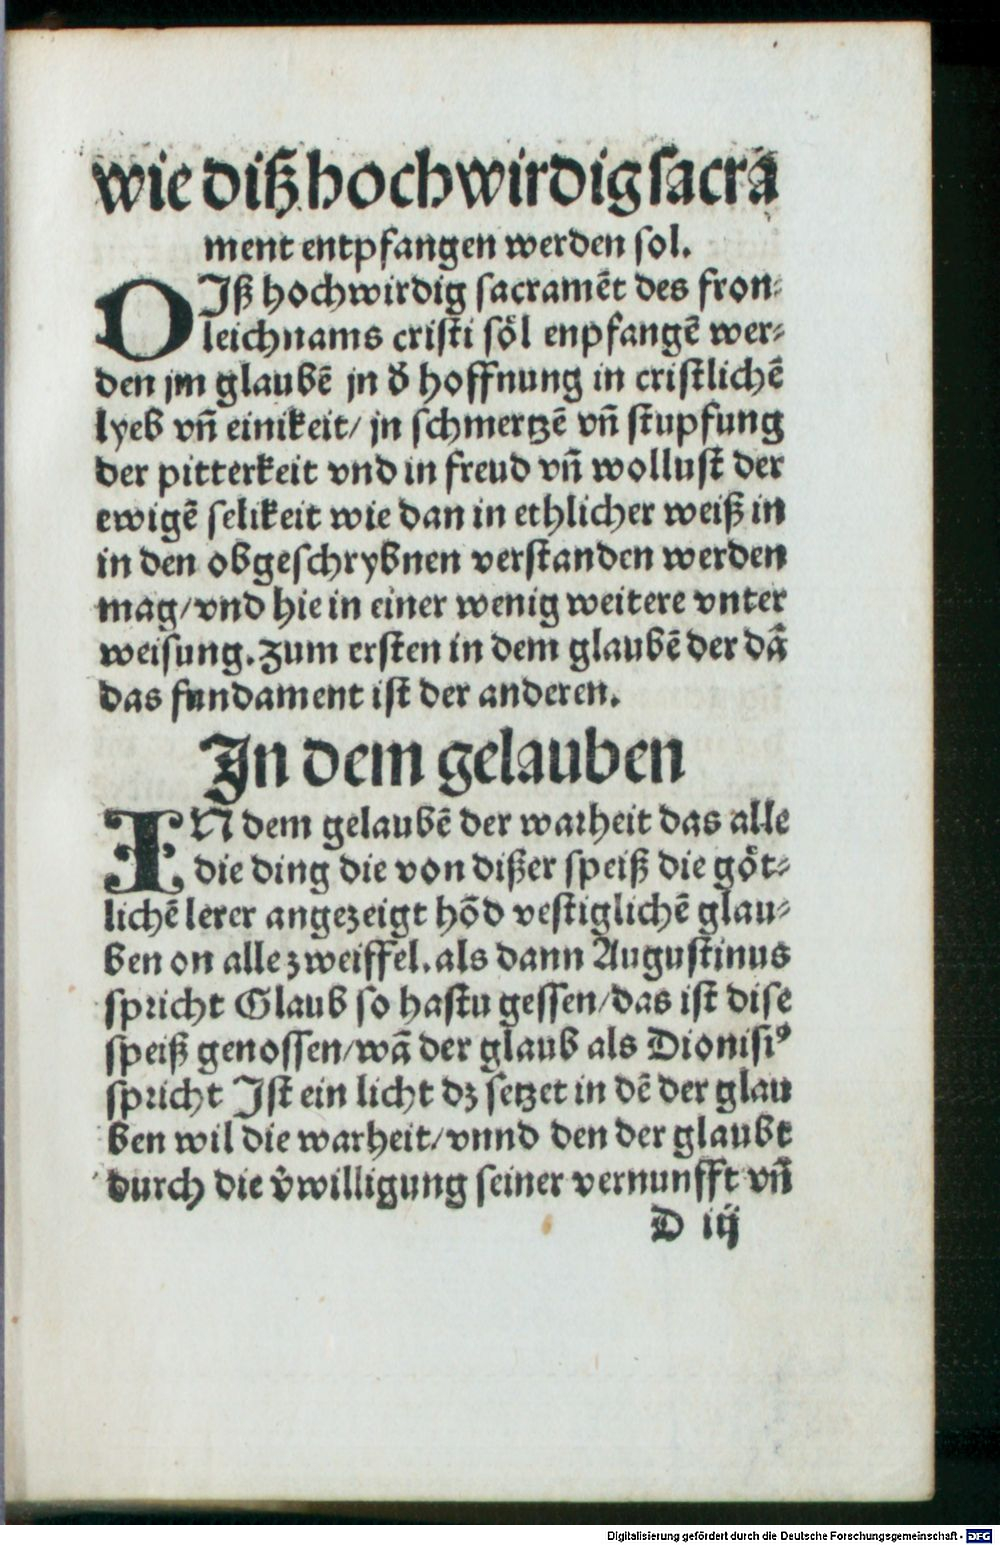 wie diß hochwirdig sacra
ment entpfangen werden sol.
DIß hochwirdig sacramẽt des fron⸗
leichnams cristi söl enpfangẽ wer⸗
den jm glaubẽ jn d̕ hoffnung in cristlichẽ
lyeb vñ einikeit/ jn schmertzẽ vñ stupfung
der pitterkeit vnd in freud vñ wollust der
ewigẽ selikeit wie dan in ethlicher weiß in
in den obgeschrybnen verstanden werden
mag/vnd hie in einer wenig weitere vnter
weisung. zum ersten in dem glaubẽ der dã
das fundament ist der anderen.
Jn dem gelauben
IN dem gelaubẽ der warheit das alle
die ding die von dißer speiß die göt⸗
lichẽ lerer angezeigt hõd vestiglichẽ glau⸗
ben on alle zweiffel. als dann Augustinus
spricht Glaub so hastu gessen/das ist dise
speiß genossen/wã der glaub als Dionisiꝰ
spricht Jst ein licht dz setzet in dẽ der glau
ben wil die warheit/vnnd den der glaubt
durch die v̕willigung seiner vernunfft vñ
D iij
Digitalisierung gefördert durch die Deutsche Forschungsgemeinschaft - DFG